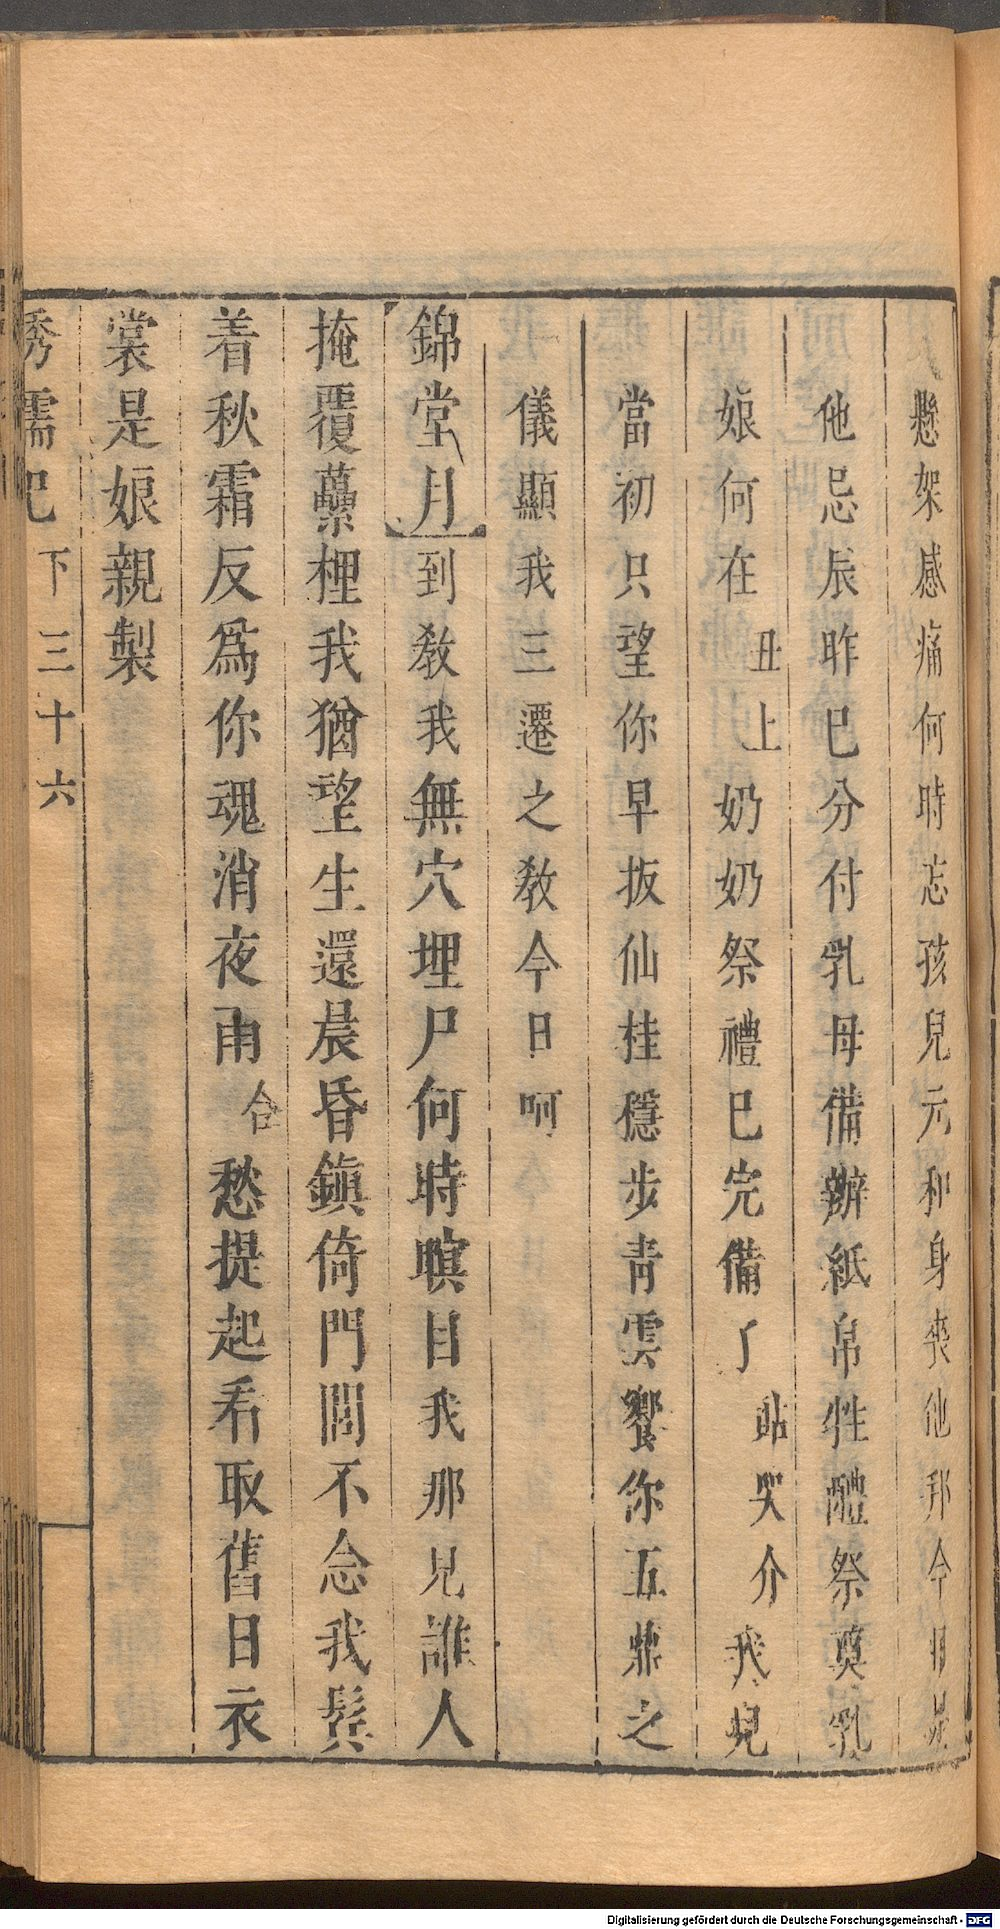 懸架感痛何時忘孩兒元和身喪他邦今日是
他忌辰昨已分付乳母備辦紙帛牲醴祭奠乳
娘何在丑上奶奶祭禮已完備了貼哭介我兒
當初只望你早扳仙桂穩步青雲饗你五鼎之
儀顯我三遷之教今日呵
錦堂月到教我無穴埋尸何時瞑目我那兒誰人
掩覆虆梩我猶望生還晨昏鎮倚門閭不念我鬂
着秋霜反為你魂消夜雨合愁提起看取舊日衣
裳是娘親製
繡襦記 下 三十六
Digitalisierung gefördert durch die Deutsche Forschungsgemeinschaft - DFG